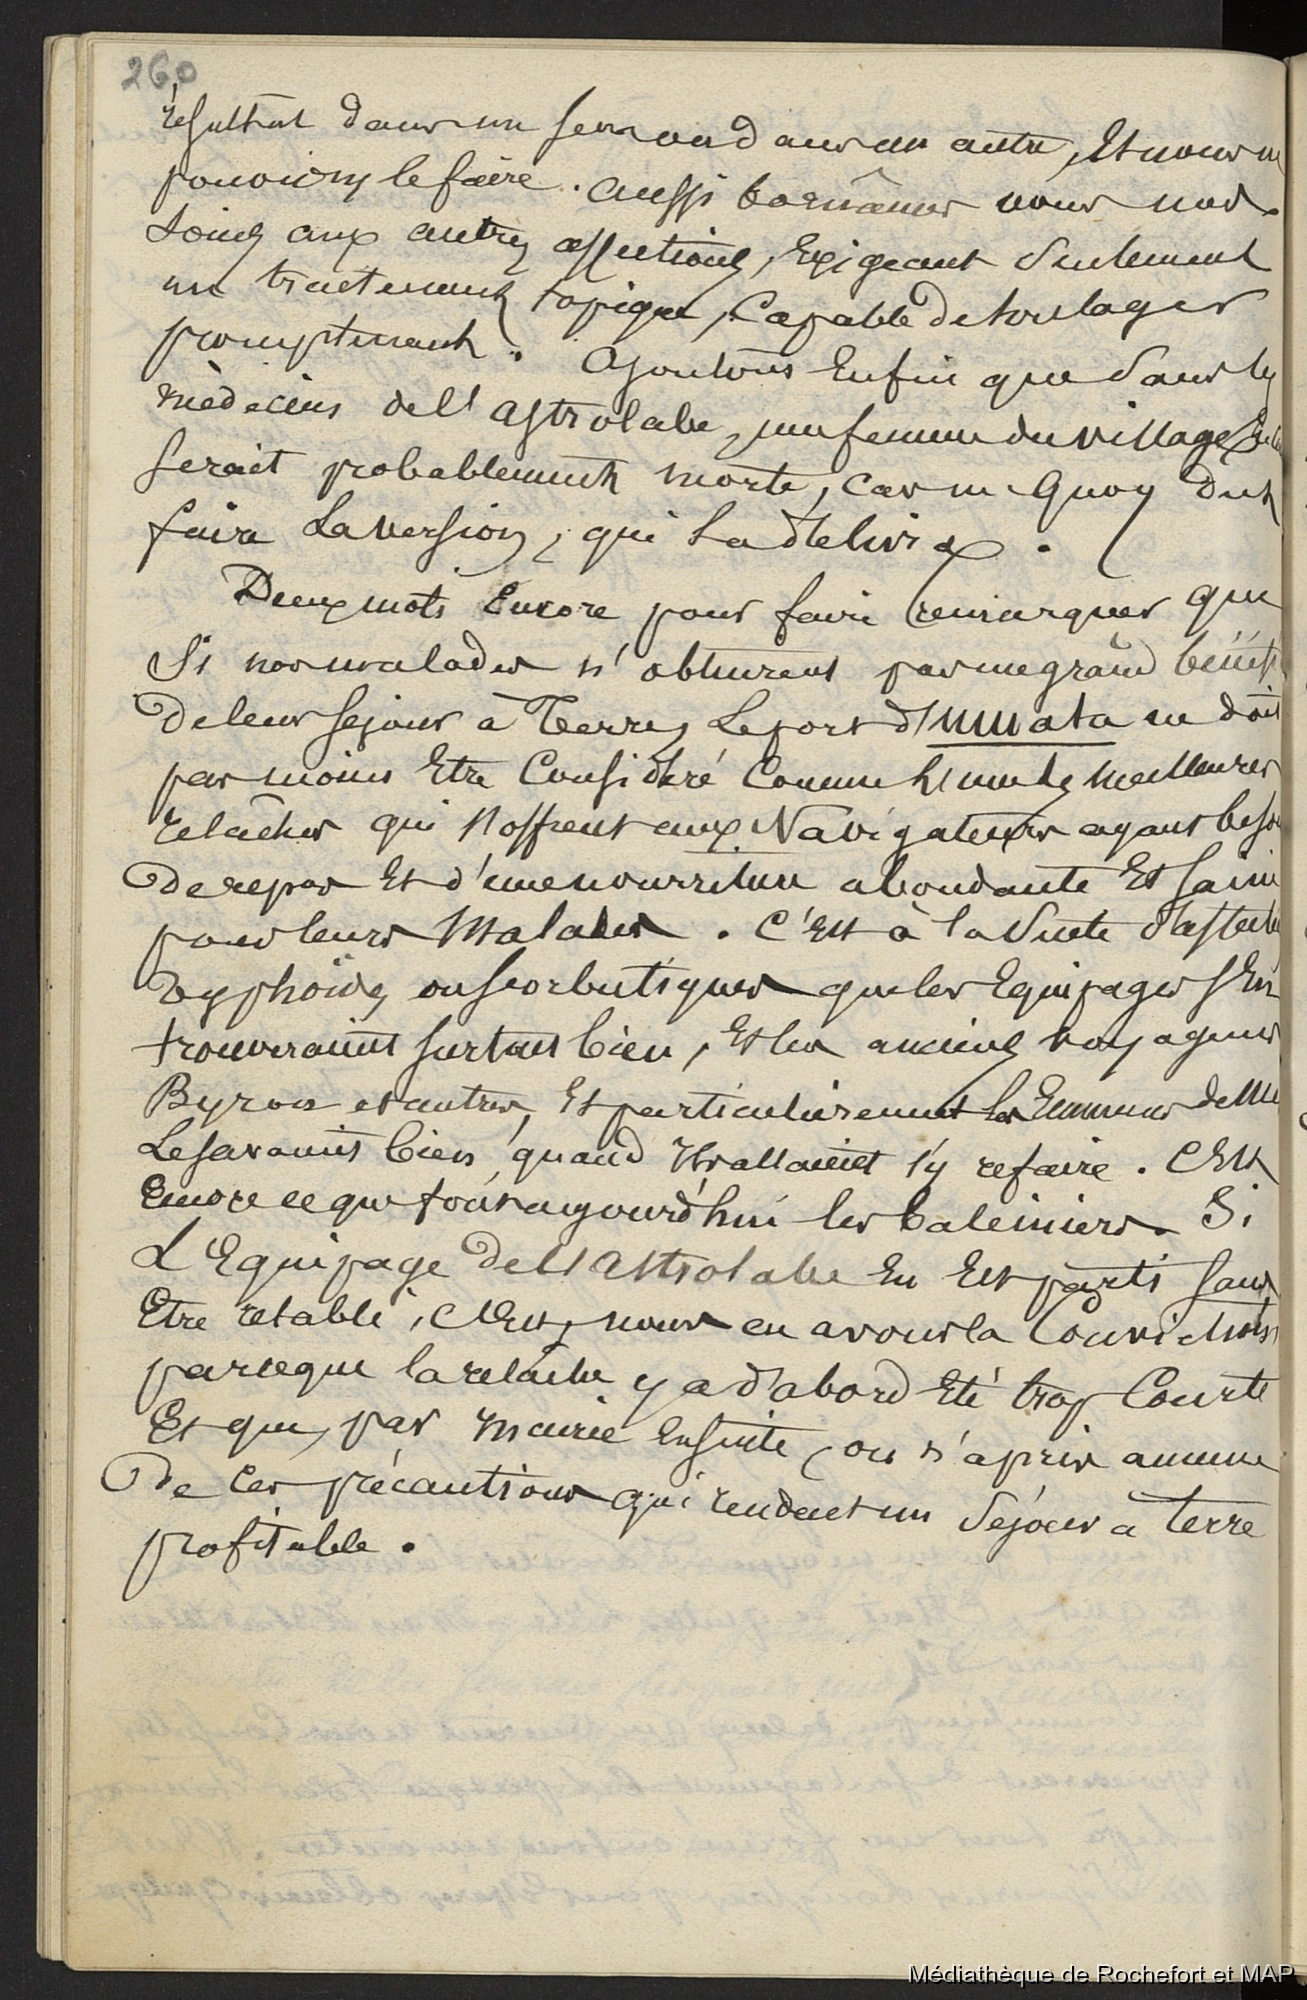 260
résultat dans un sens ou dans un autre, Et nous ne
pouvions le faire. Aussi bornâmes nous nos
soins aux autres affections, Exigeant seulement
un traitement topique, Capable de soulager
promptement. Ajoutons Enfin que sans les
médecins de l'astrolabe, une femme du village
serait probablement morte, car m Quoy dut
faire La version, qui La délivra.
Deux mots Encore pour faire remarquer que
Si nos malades n'obtinrent pas un grand bénéfi
De leur séjour à Terre, Le port d'umata ne doit
pas moins Etre Considéré Comme l'une des meilleures
relâches qui s'offrent aux Navigateurs ayant beso
De repos Et d'une nourriture abondante Et saine
pour leurs Malades. C'Est à la suite d'affecti
typhoïdes ou scorbutiques que les Equipages s'En
trouveraient surtout bien, Et les anciens voyageurs
Byron et autres, Et particulièrement les
Le savaient bien, quand Ils allaient s'y refaire. C'Est
Encore ce que font aujourd'hui les baleiniers. Si
L'Equipage De l'Astrolabe En Est parti sans
Etre rétabli, C'Est, nous en avons la Conviction
parceque la relâche y a d'abord Eté trop Courte
Et que, par Ensuite, on n'a pris aucune
De Ces précautions qui rendent un Séjour à terre
profitable.
Médiathèque de Rochefort et MAP